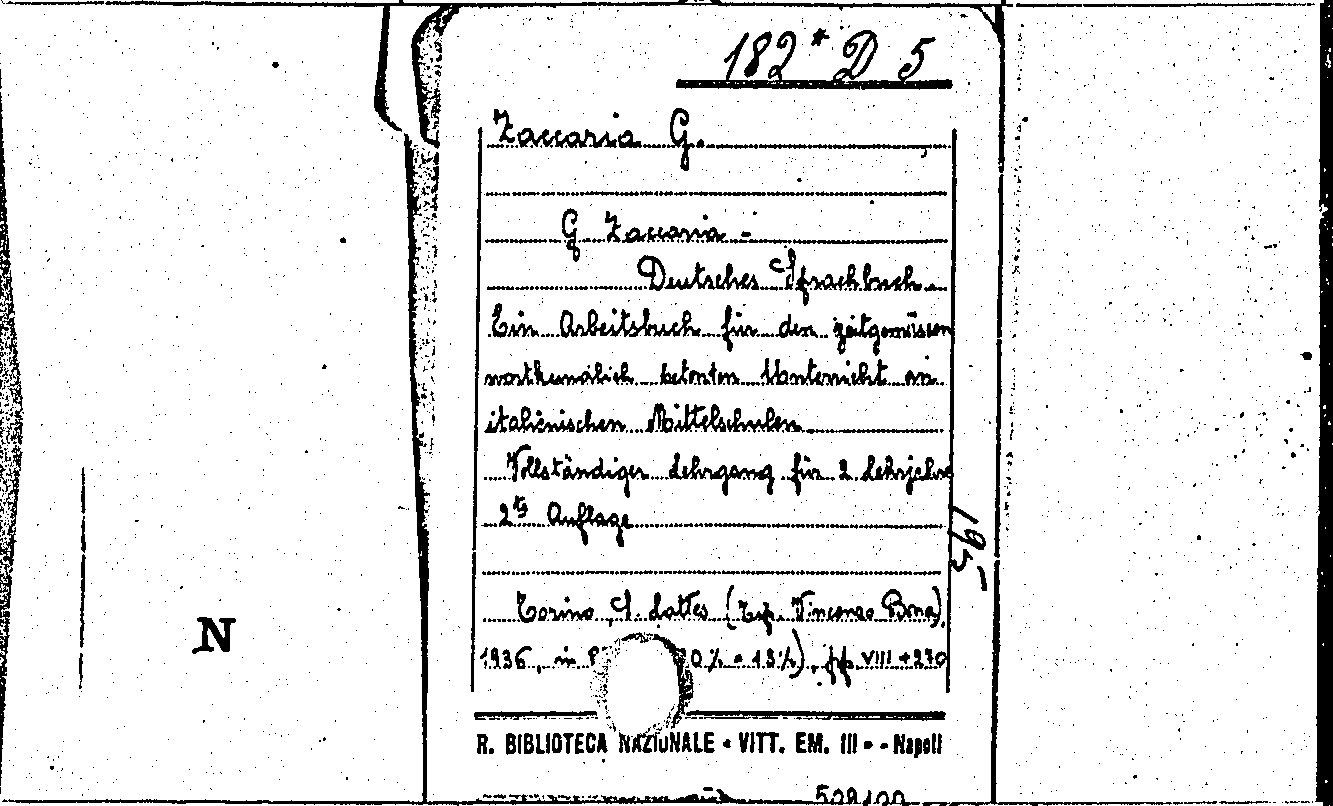 182* D 5
Zaccaria G.
G Zaccaria -
Deutsches Sprachbuch.
Ein Arbeitsbuch für den zeitgemässen
wortkundlich betonten Unterricht an
italienischen Mittelschulen.
Vollständiger Lehrgang für 2 Lehrjahre
2te Auflage
195
Torino, S. Lattes (Tip. Vincenzo Bona),
1936, in 8 pp. VIII + 230
N
R. BIBLIOTECA NAZIONALE « VITT. EM. III » - Napoli